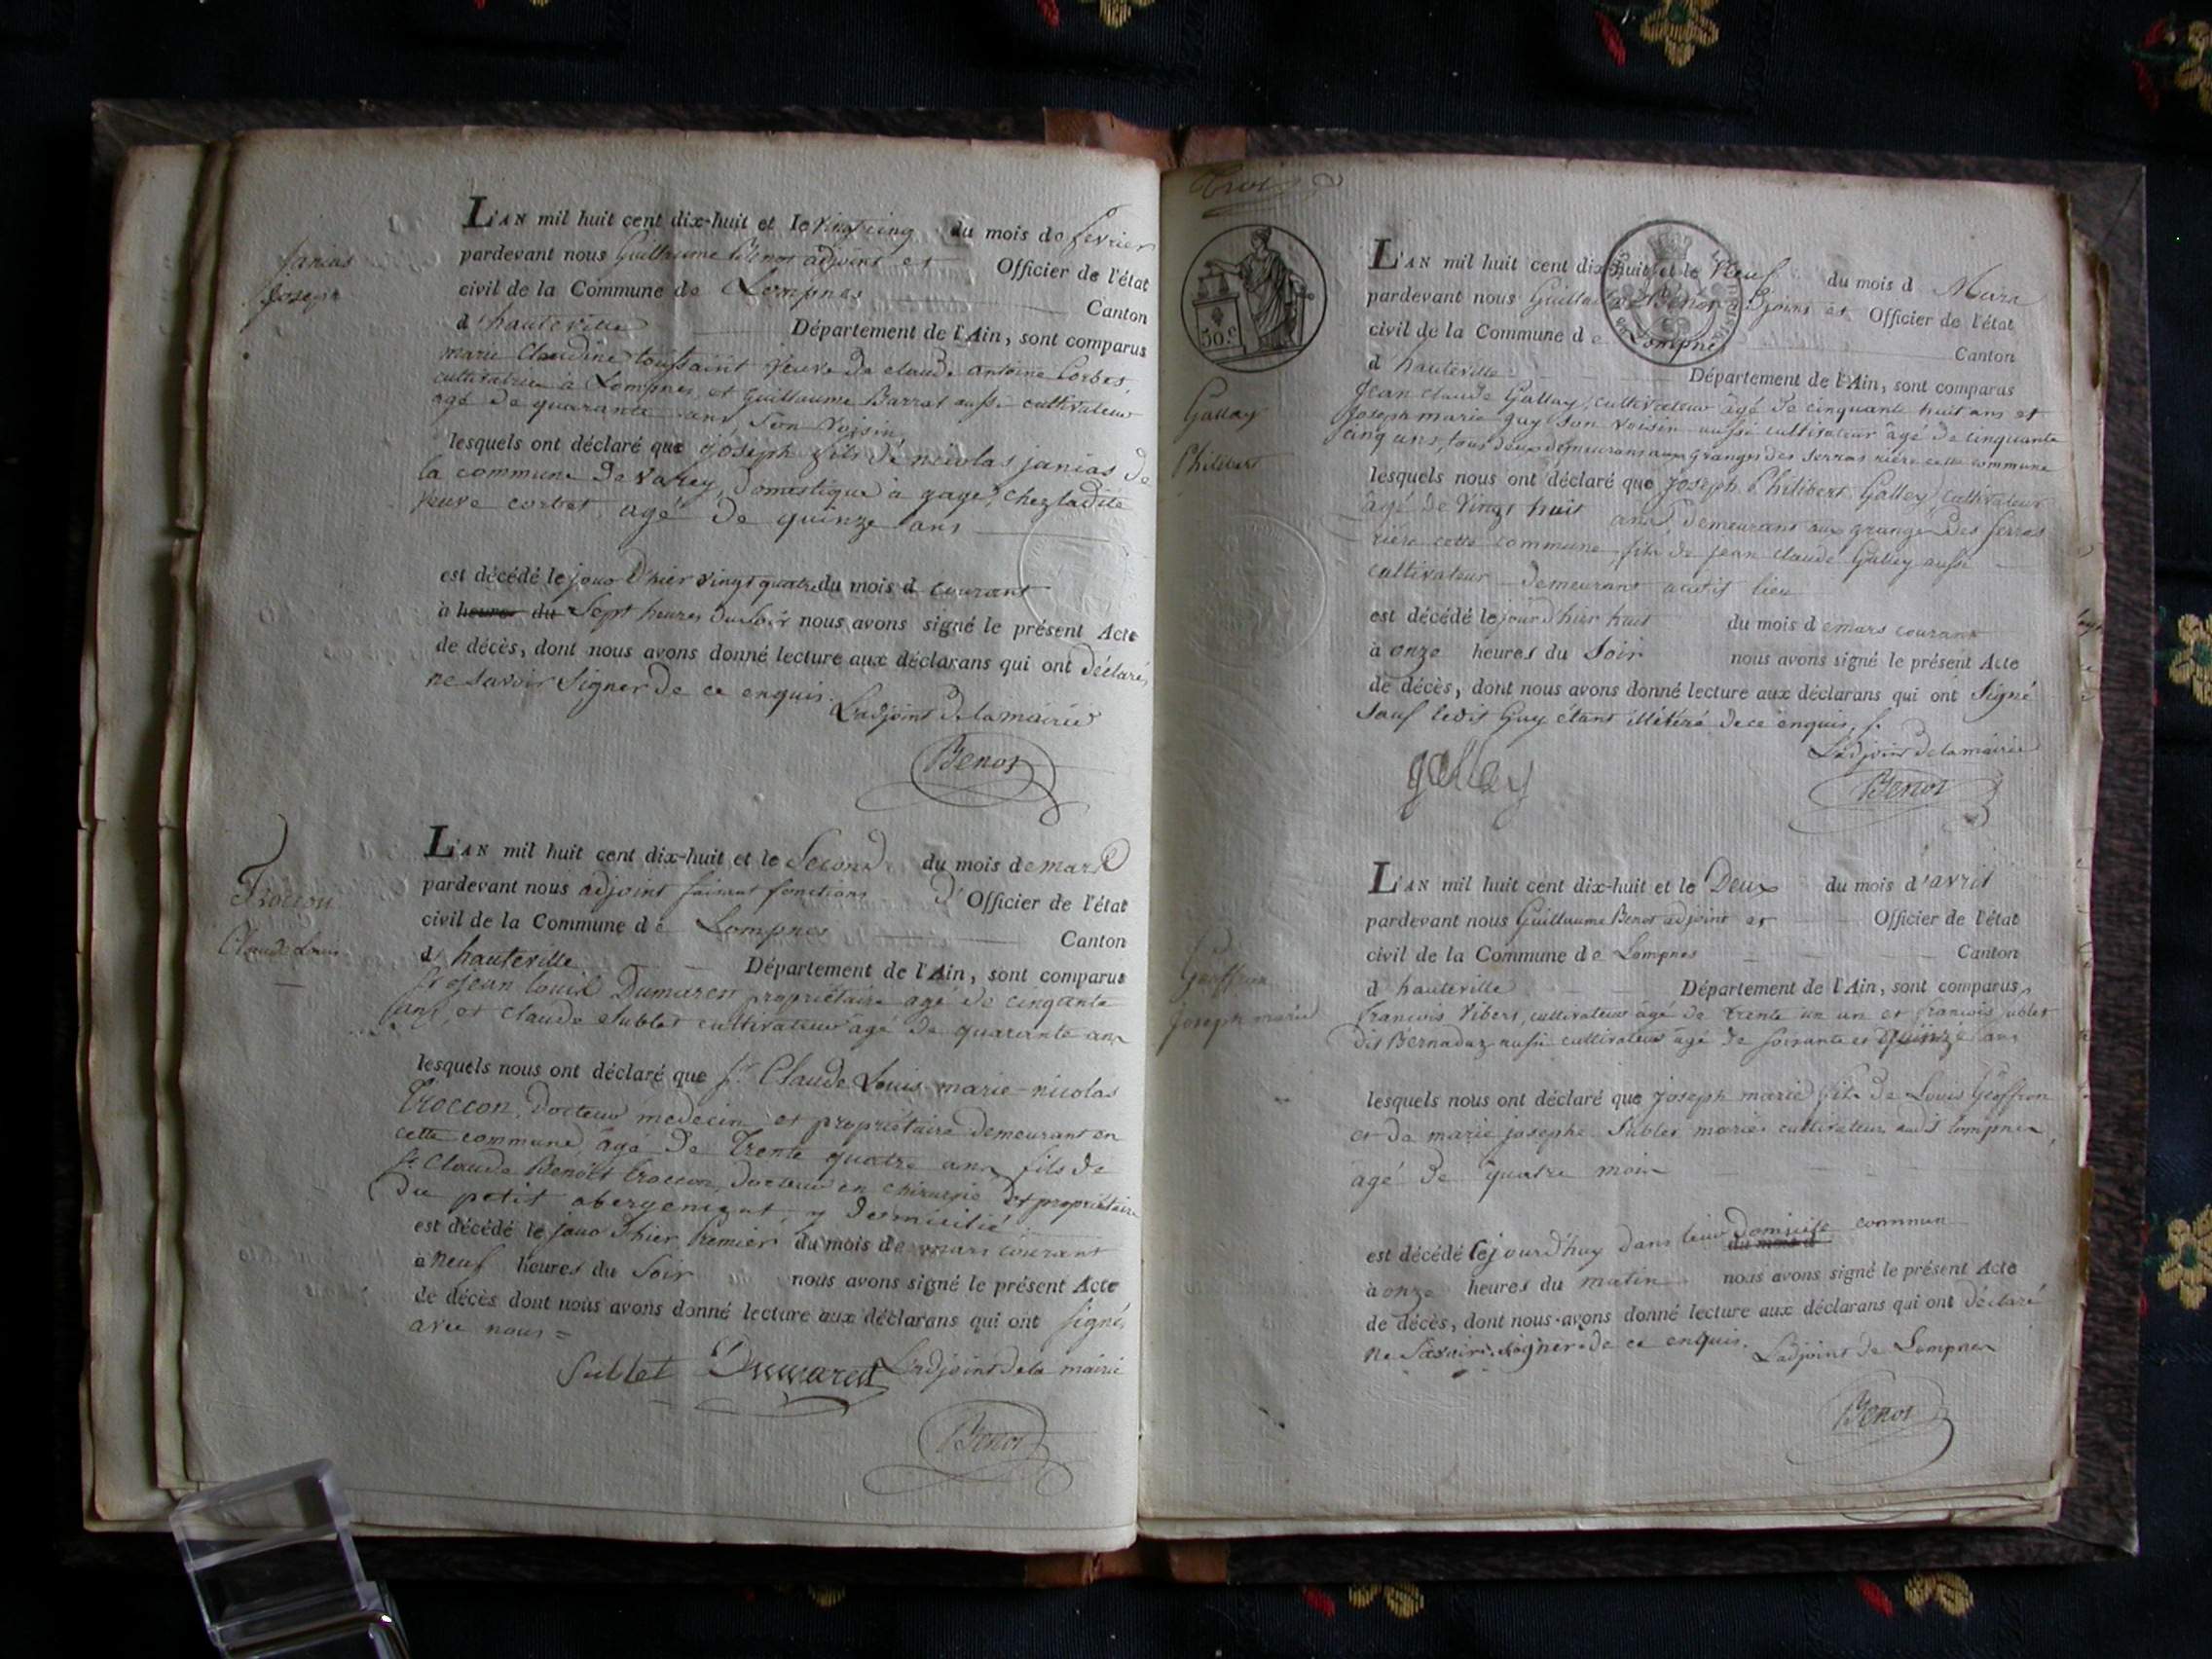 Janias
Joseph
L'AN mil huit cent dix-huit et le vingt cinq du mois de fevrier
pardevant nous Guillaume Benot adjoint et Officier de l'état
civil de la Commune de Lompnes Canton
d'hauteville Département de l'Ain, sont comparus
marie Claudine toussaint veuve de claude antoine Corbet
cultivatrice à Lompnes, et Guillaume Barrat aussi cultivateur
agé de quarante ans, son voisin
lesquels ont déclaré que joseph fils de nicolas janias de
la commune de varey, domestique à gage, chez ladite
veuve corbet agé de quinze ans
est décédé le jour d'hier vingt quatre du mois d courant
à heures du Sept heures du soir nous avons signé le présent Acte
de décès, dont nous avons donné lecture aux déclarans qui ont déclarés
ne savoir signer de ce enquis.
L'adjoint de la mairie
Benot
Troccon
Claude Louis
L'AN mil huit cent dix-huit et le Second du mois de mars
pardevant nous adjoint faisant fonctions d'Officier de l'état
civil de la Commune de Lompnes Canton
d'hauteville Département de l'Ain, sont comparus
Sr jean Louis Dumarest propriétaire agé de cinqante
ans, et claude Sublet cultivateur agé de quarante ans
lesquels nous ont déclaré que Sr Claude Louis marie-nicolas
Troccon, docteur medecin et propriétaire demeurant en
cette commune, âgé de Trente quatre ans fils de
Sr Claude Benoît Troccon, docteur en chirurgie et propriétaire
du petit abergement y domicilié
est décédé le jour d'hier Premier du mois de mars courant
à neuf heures du Soir nous avons signé le présent Acte
de décès dont nous avons donné lecture aux déclarans qui ont signés
avec nous =
Sublet Dumarest L'adjoint de la mairie
Benot
Trois
50 c.
Gallay
Philibert
L'AN mil huit cent dix-huit et le Neuf du mois d Mars
pardevant nous Guillaume Benot adjoint et Officier de l'état
civil de la Commune de Lompnes Canton
d'hauteville Département de l'Ain, sont comparus
Jean Claude Gallay, cultivateur âgé de cinquante huit ans et
Joseph marie guy son voisin aussi cultivateur âgé de cinquante
cinq ans, tous deux demeurans aux granges des Serras rière cette commune
lesquels nous ont déclaré que joseph Philibert Galley, cultivateur
âgé de Vingt huit ans demeurant aux granges des Serras
rière cette commune, fils de jean claude Galley aussi
cultivateur demeurant audit lieu
est décédé le jour d'hier huit du mois de mars courant
à onze heures du Soir nous avons signé le présent Acte
de décès, dont nous avons donné lecture aux déclarans qui ont Signé
Sauf ledit Guy étant illitéré de ce enquis
L'adjoint de la mairie
galley Benot
Geoffron
joseph marie
L'AN mil huit cent dix-huit et le Deux du mois d'avril
pardevant nous Guillaume Benot adjoint et Officier de l'état
civil de la Commune de Lompnes Canton
d hauteville Département de l'Ain, sont comparus
francois Vibert, cultivateur âgé de trente un an et francois Sublet
dit Bernadaz aussi cultivateur âgé de soixante et quinze ans
lesquels nous ont déclaré que joseph marie fils de Louis Geoffron
et de marie josephe Sublet mariés cultivateurs audit lompnes,
agé de quatre mois
est décédé cejourd'huy dans leur domicile commun
du mois d
à onze heures du matin nous avons signé le présent Acte
de décès, dont nous avons donné lecture aux déclarans qui ont déclaré
ne Savoir signer de ce enquis.
L'adjoint de Lompnes
Benot